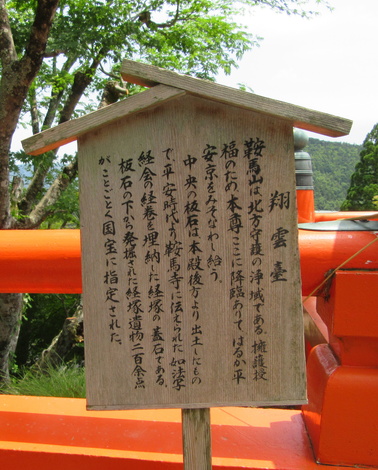 翔雲臺
鞍馬山は、北方守護の浄域である。擁護授
福のため、本尊ここに降臨ありて、はるか平
安京をみそなわし給う。
中央の板石は、本殿後方より出土したもの
で、平安時代より鞍馬寺に伝えられた如法写
経会の経巻を埋納した経塚の蓋石である。
板石の下から発掘された経塚遺物二百余点
がことごとく国宝に指定された。